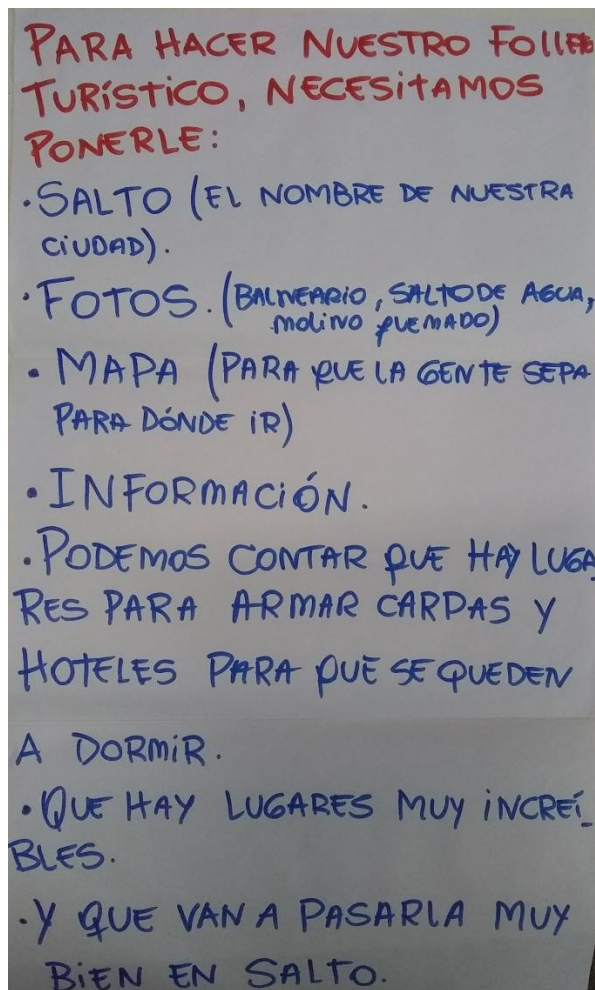 PARA HACER NUESTRO FOLLETO
TURÍSTICO, NECESITAMOS
PONERLE:
·SALTO (EL NOMBRE DE NUESTRA
CIUDAD).
·FOTOS. (BALNEARIO, SALTO DE AGUA,
MOLINO QUEMADO)
· MAPA (PARA QUE LA GENTE SEPA
PARA DÓNDE IR)
·INFORMACIÓN.
·PODEMOS CONTAR QUE HAY LUGA
RES PARA ARMAR CARPAS Y
HOTELES PARA QUE SE QUEDEN
A DORMIR.
·QUE HAY LUGARES MUY INCREÍ_
BLES.
·Y QUE VAN A PASARLA MUY
BIEN EN SALTO.